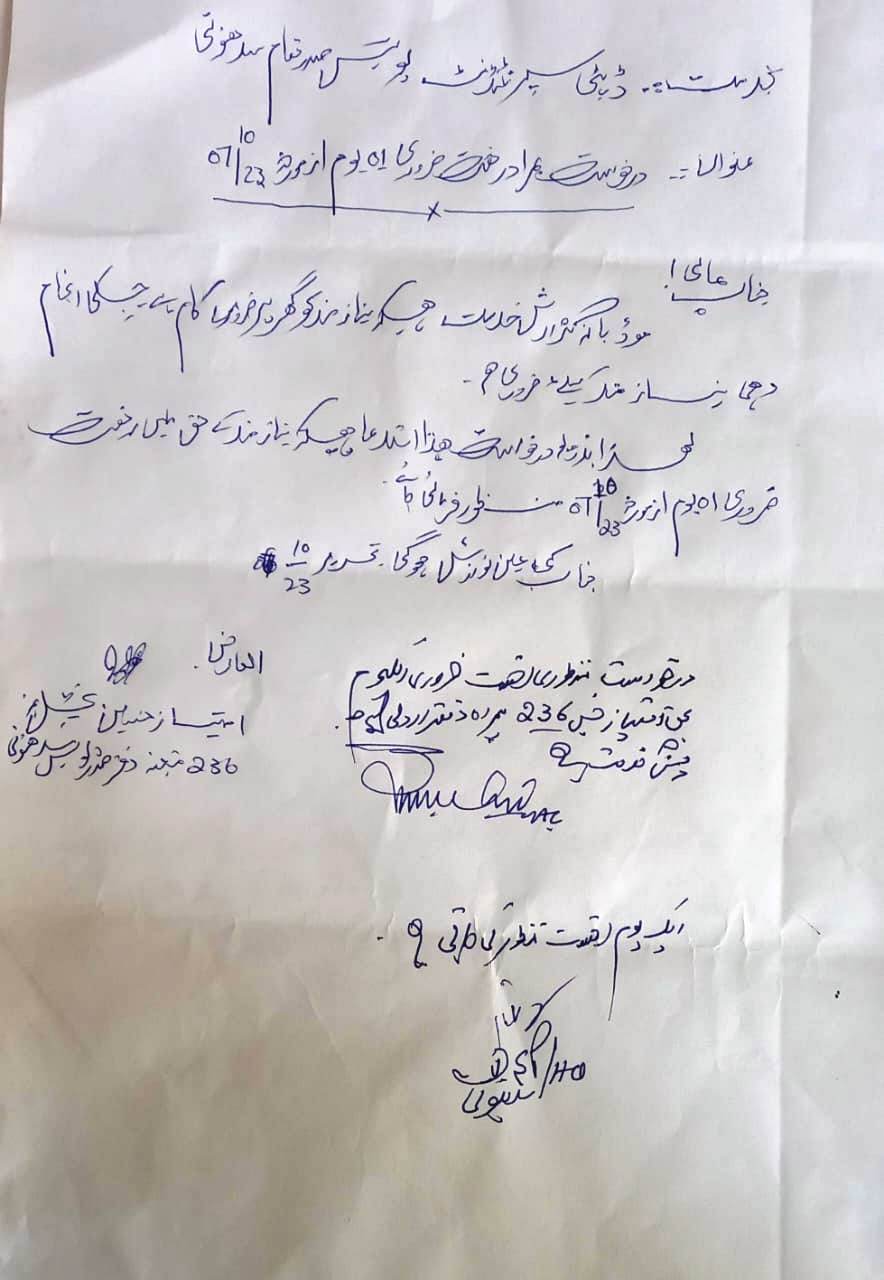 بخدمت :۔ ڈپٹی سپرنٹنڈنٹ پولیس صدر مقام سدھنوتی
عنوان :۔ درخواست بمراد رخصت ضروری 01 یوم از مورخہ 07/10/23
جناب عالی!
مودبانہ گزارش خدمت ہیکہ نیازمند کو گھر پر ضروری کام ہے جسکی انجام
دہی نیازمند کیلئے ضروری ہے۔
لہذا بذریعہ درخواست ہذا استدعا ہیکہ نیازمند کے حق میں رخصت
ضروری 01 یوم از مورخہ 07/10/23 منظور فرمائی جائے۔
جناب کی عین نوازش ہوگی۔ تحریر 10/23
العارض
امتیاز حسین
236 متعینہ دفتر پولیس سدھنوتی
درخواست منظوری رخصت ضروری یکیوم
بحق امتیاز 236 ہمراہ دفتر اردلی
پیش خدمت ہے
ایک یوم رخصت منظور کی جاتی ہے۔
HQ/
سدھنوتی